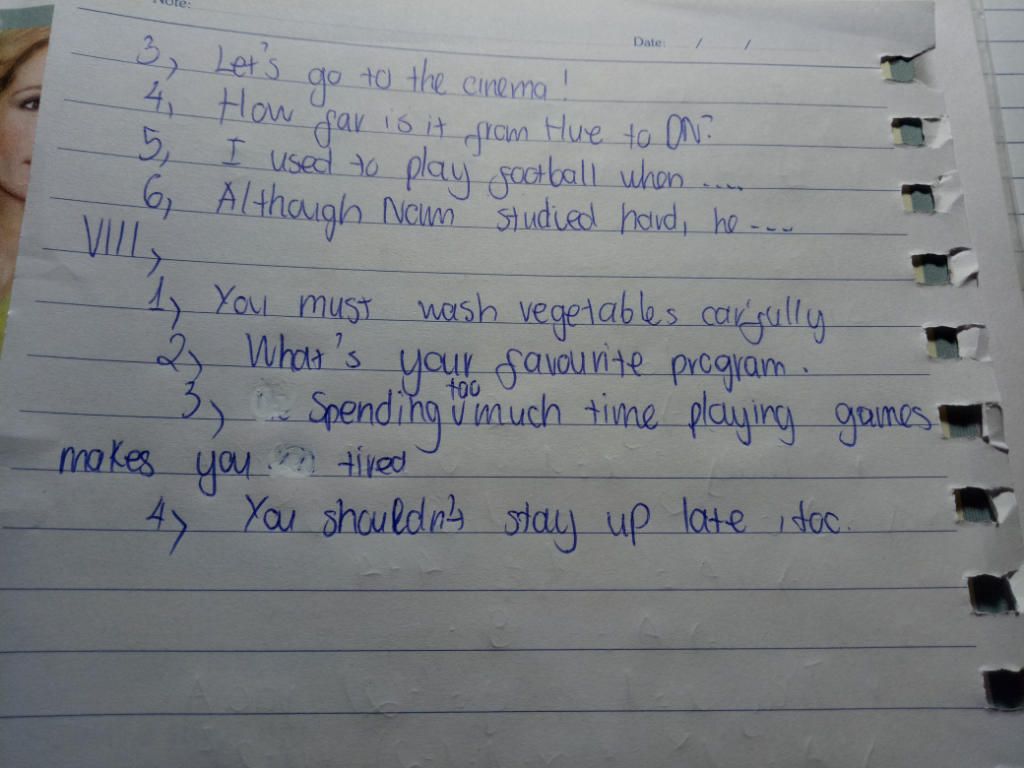 Note:
Date: / /
3, Let's go to the cinema!
4, How far is it from Hue to ĐN?
5, I used to play football when ....
6, Although Nam studied hard, he ----
VIII,
1, You must wash vegetables carfully
2, What's your favourite program.
3, Spending too much time playing games
makes you tired
4, You shouldn't stay up late, too.